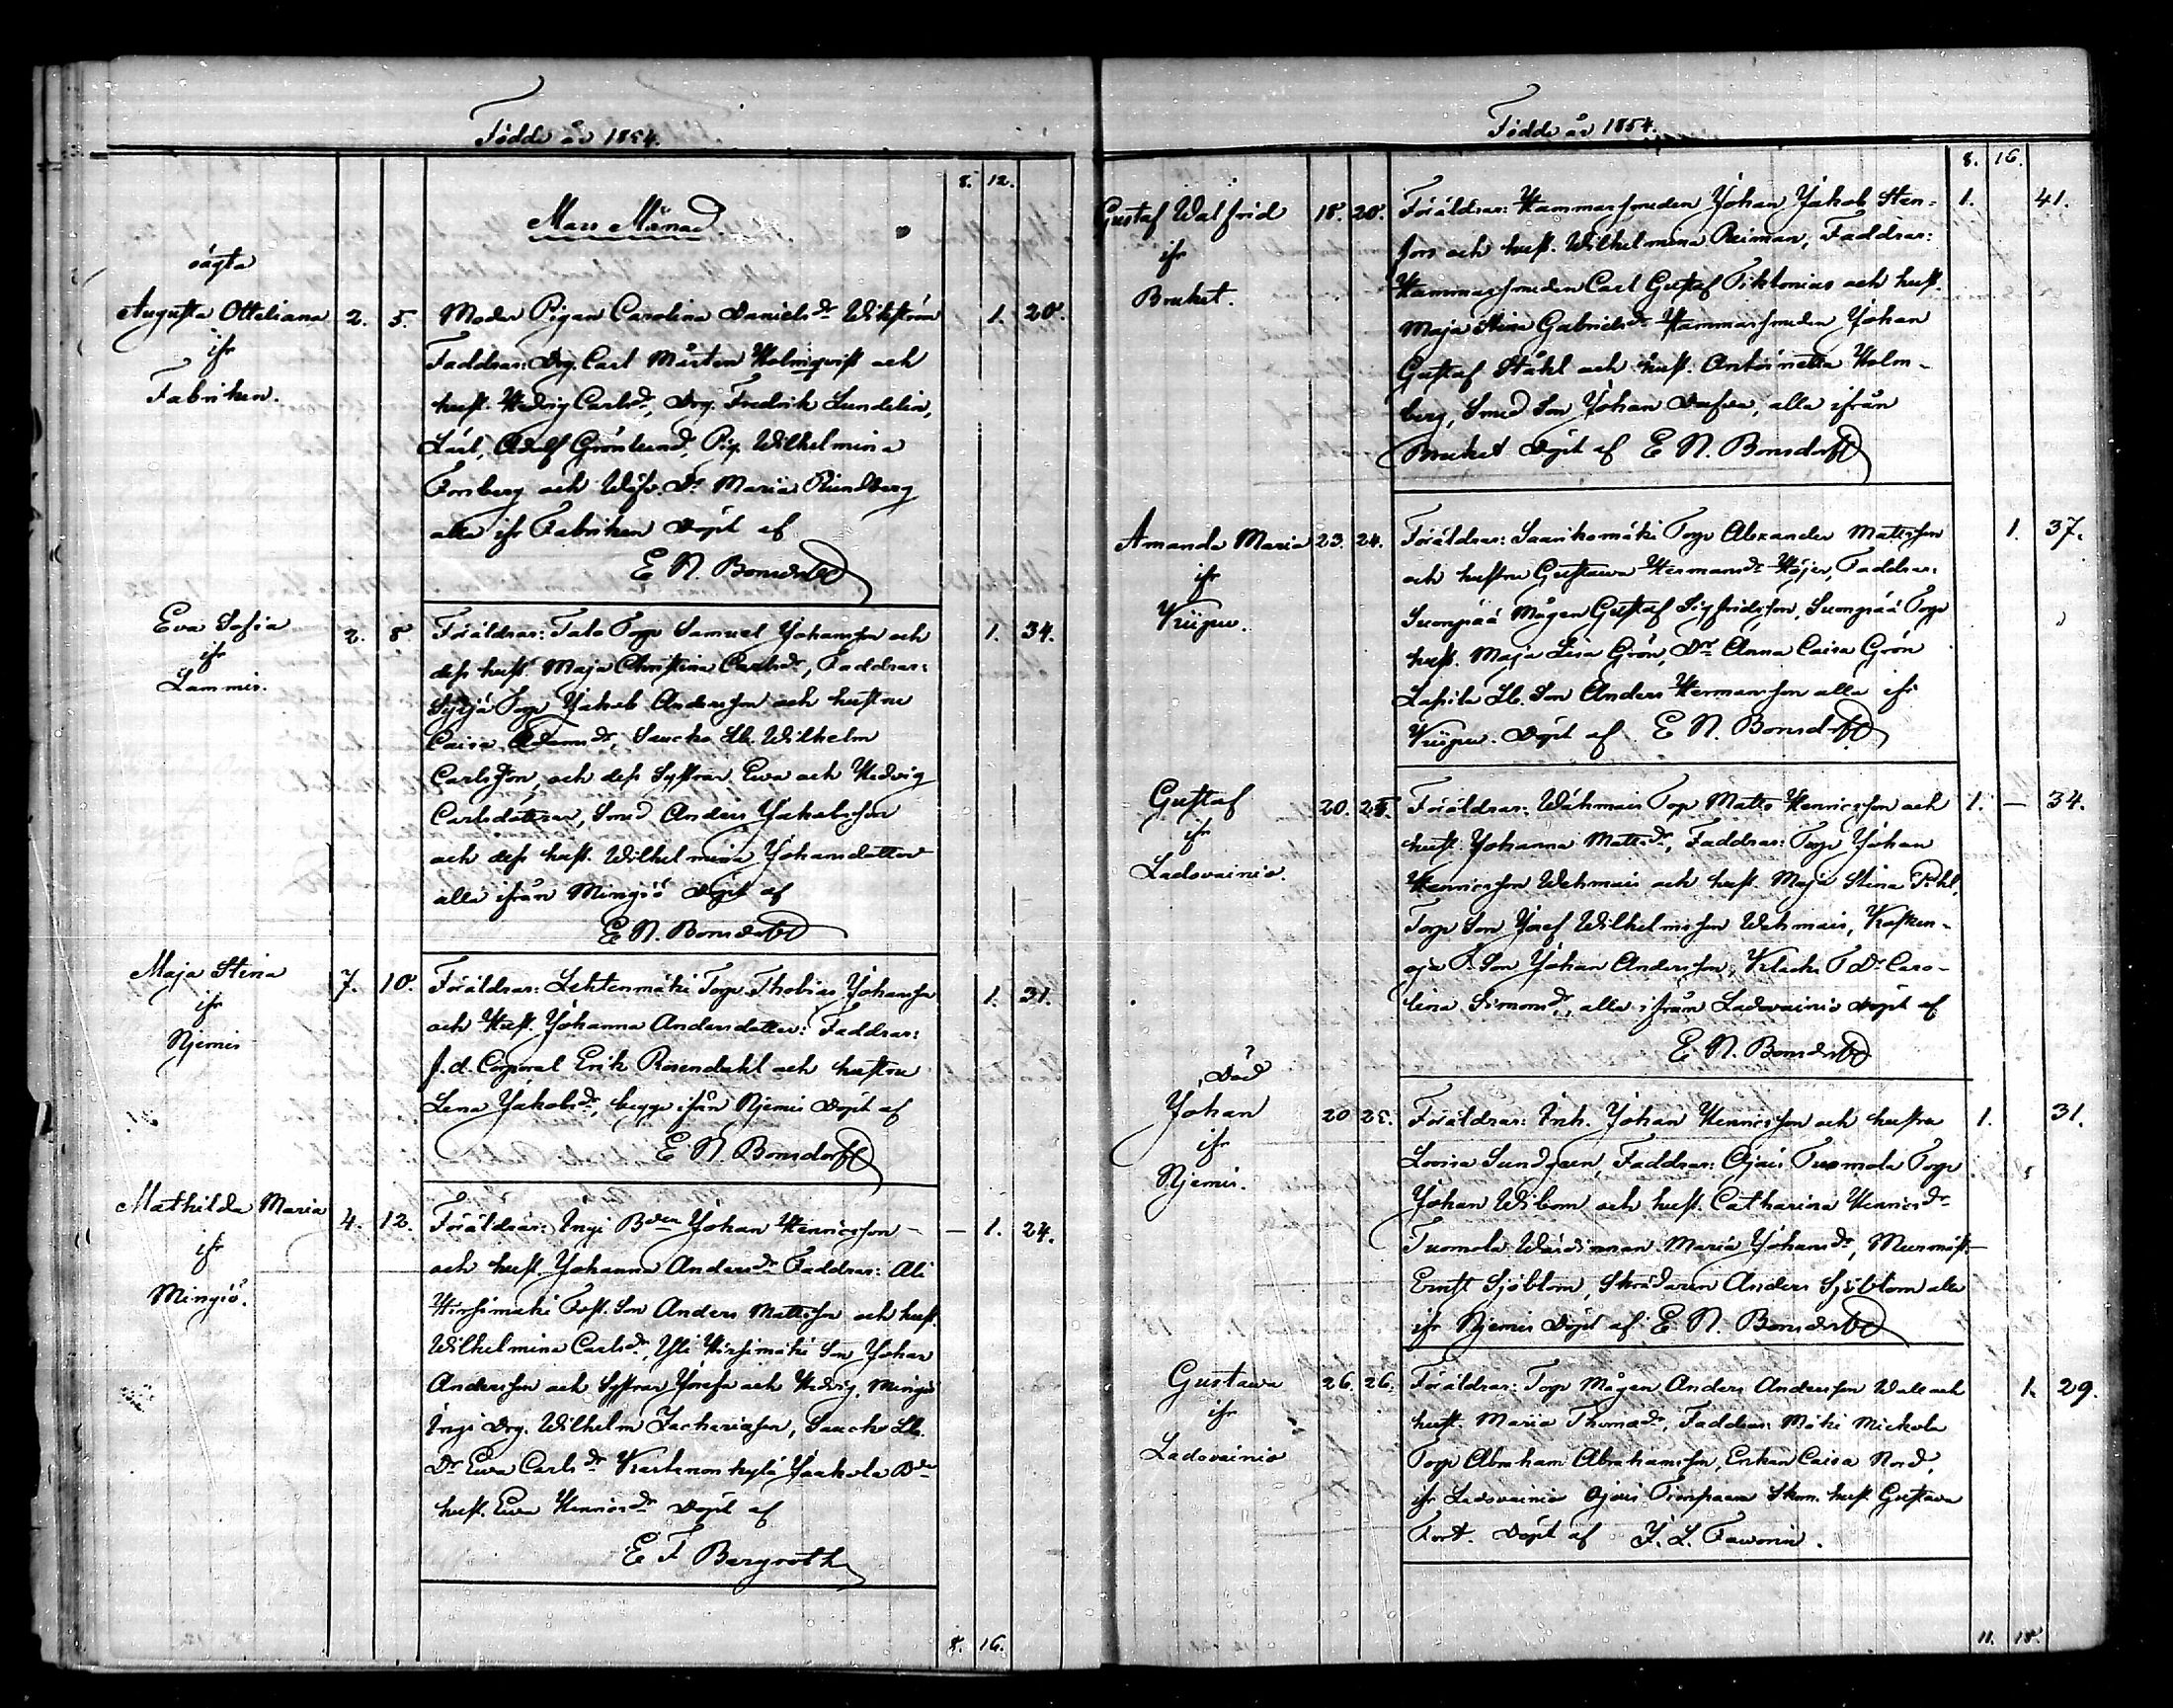 Födde år 1854.
8. 12.
Mars Månad
oägta
Augusta Otteliana 2. 5. Moder Pigan Carolina Danielsdr Wikström 1. 28.
ifr Faddrar: Drg. Carl Mårten Holmqvist och
Fabriken. hust. Hedvig Carlsdr, Drg. Fredrik Lundelin,
Lärl. Adolf Grönlund, Pig. Wilhelmina
Forsberg och Dr Maria Rundberg
alla ifr Fabriken Döpt af
E N. Bonsdorff
Eva Sofia 2. 8. Föräldrar: Talo Torp Samuel Johansson och 1. 34.
ifr dess hust. Maja Christina Carlsdr, Faddrar:
Lammis. Syrjä Torp Jakob Andersson och hustru
Caisa Adamsdr, Saucko Lb. Wilhelm
Carlsson, och dess Systrar Ewa och Hedvig
Carlsdöttrar, Smed Anders Jakobsson
och dess hust. Wilhelmina Johansdotter
alla ifrån Mingiö Döpt af
E N. Bonsdorff
Maja Stina 7. 10. Föräldrar: Lehtenmäki Torp Thobias Johansson 1. 31.
ifr och Hust. Johanna Andersdotter: Faddrar:
Njemis f.d. Corporal Erik Rosendahl och hustru
Lena Jakobsdr, begge ifrån Njemis Döpt af
E N. Bonsdorff
Mathilda Maria 4. 12. Föräldrar: Ingi Bden Johan Henricsson — 1. 24.
ifr och hust. Johanna Andersdr Faddrar: Ali
Mingiö. Hirsimäki Torp. Son Anders Mattsson och hust.
Wilhelmina Carlsdr, Yli Hirsimäki Son Johan
Andersson och Systrar Josefa och Hedvig, Mingiö
Ingi Drg. Wilhelm Zachariasson, Saucko Lb.
Dr Ewa Carlsdr Kartanonkylä Jaakola Bde
hust. Ewa Henricsdr Döpt af
E F Bergroth
8. 16.
Födde år 1854.
8. 16.
Gustaf Walfrid 18. 20. Föräldrar: Hammarsmeden Johan Jakob Sten- 1. 41.
ifr fors och hust. Wilhelmina Reiman, Faddrar:
Bruket. Hammarsmeden Carl Gustaf Tiktonius och hust.
Maja Stina Gabrielsdr Hammarsmeden Johan
Gustaf Ståhl och hust. Antoinetta Holm-
berg, Smed Son Johan alla ifrån
Bruket Döpt af E N. Bonsdorff
Amanda Maria 23. 24. Föräldrar: Saarikomäki Torp Alexander Mattsson 1. 37.
ifr och hustru Gustawa Hermansdr Höjer, Faddrar:
Wiiper. Suonpää Mågen Gustaf Sigfridsson, Suonpää Torp
hust. Maja Lisa Grön, Dr Anna Caisa Grön
Lassila Lb. Son Anders Hermansson alla ifr
Wiiper. Döpt af E N. Bonsdorff
Gustaf 20. 25. Föräldrar: Wähmais Torp Matts Henricsson och 1. — 34.
ifr hust. Johanna Mattsdr, Faddrar: Torp Johan
Ladovainio. Henricsson Wehmais och hust. Maja Stina Pihl,
Torp Son Josef Wilhelmsson Wehmais, Kosken-
oja T. Son Johan Andersson, T. Dr Caro-
lina Simonsdr, alla ifrån Ladovainio Döpt af
E. N. Bonsdorff
Död
Johan 20 25. Föräldrar: Inh. Johan Henricsson och hustru 1. 31.
ifr Lovisa Sundgren, Faddrar: Ojais Tuomola Torp
Njemis. Johan Wibom och hust. Catharina Henricsdr
Tuomola Wärdinnan Maria Johansdr, Murmäst.
Ernst Sjöblom, Skrädaren Anders Sjöblom alla
ifr Njemis Döpt af E. N. Bonsdorff
Gustawa 26. 26. Föräldrar: Torp Mågen Anders Andersson Wall och 1. 29.
ifr hust. Maria Thomasdr, Faddrar: Mäki Mickola
Ladovainio Torp Abraham Abrahamsson, Enkan Caisa Nord,
ifr Ladovainio Ojais Skom. hust. Gustava
Fort. Döpt af J. L. Faworin.
11. 18.